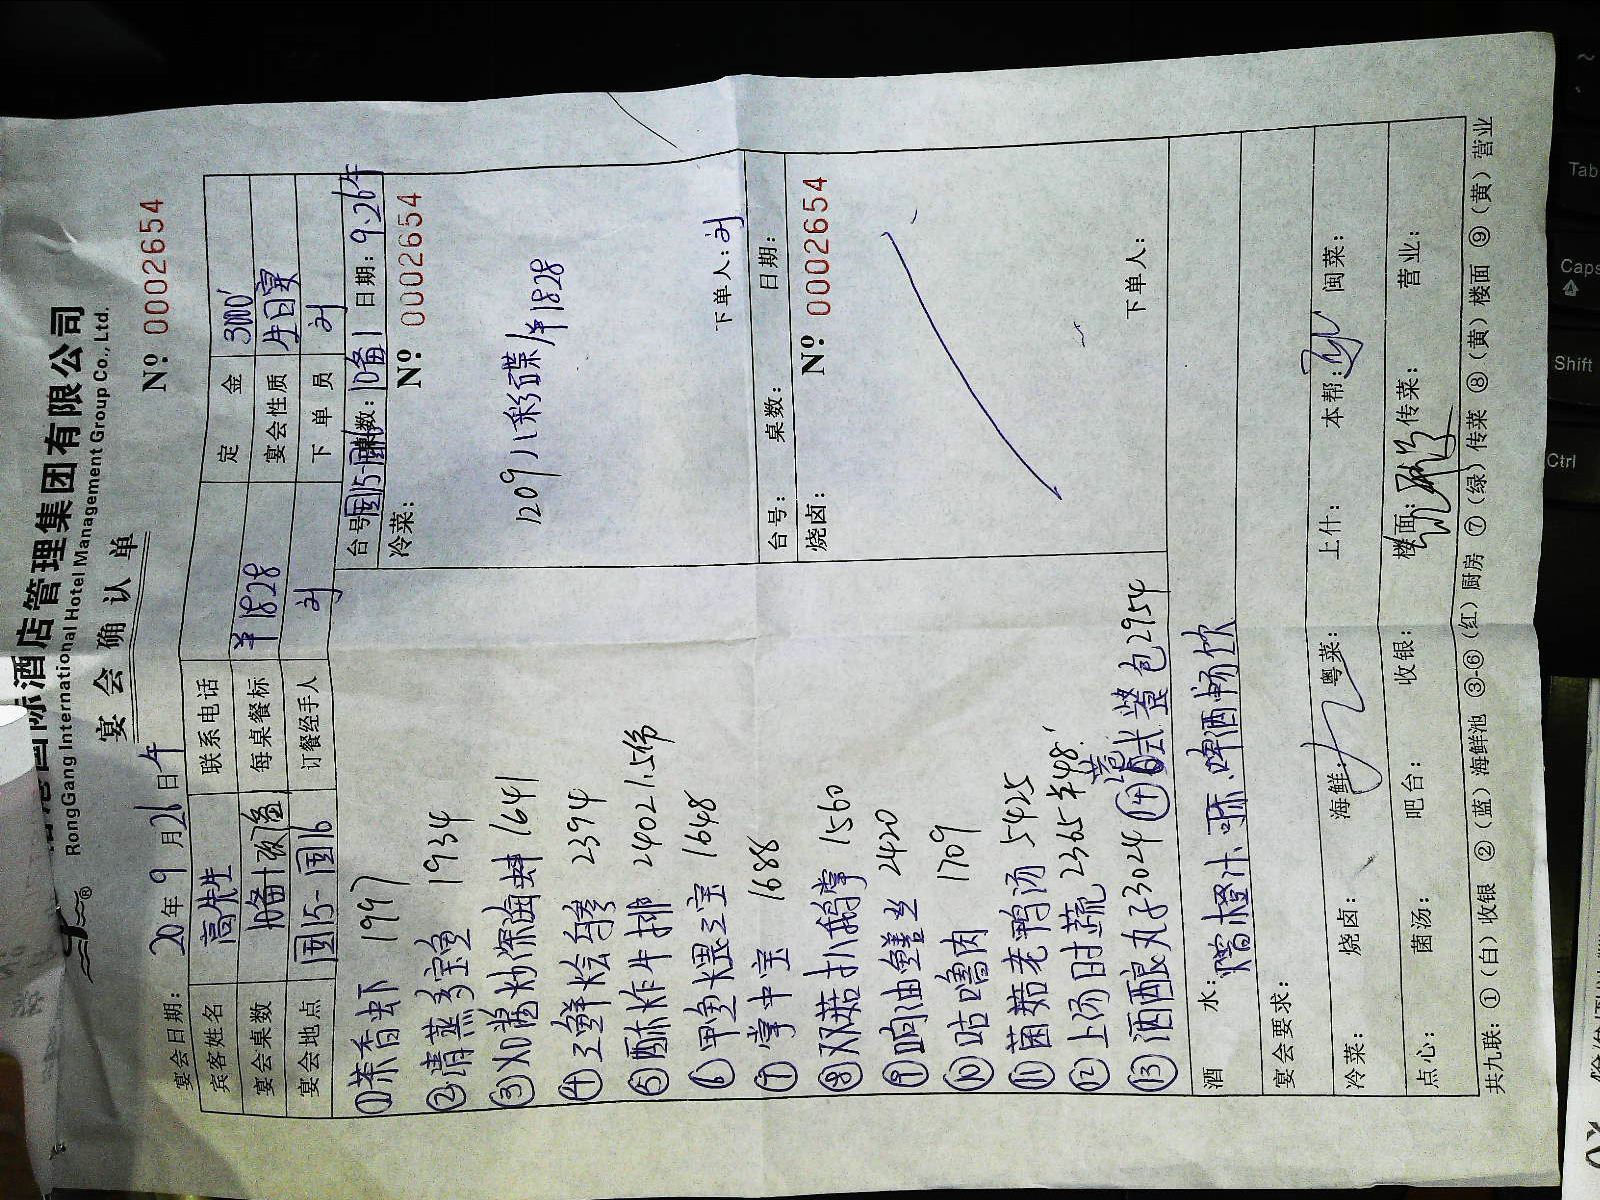 国际酒店管理集团有限公司
RongGang International Hotel Management Group Co., Ltd.
宴会确认单
宴会日期: 20 年 9 月 26 日 午 Nº: 0002654
宾客姓名 高先生 联系电话 定金 3000
宴会桌数 10备1 每桌餐标 ¥1828 宴会性质 生日宴
宴会地点 国15-国16 订餐经手人 刘 下单员 刘
①茶香虾 1997
②清蒸多宝鱼 1934
③XO酱炒深海蚌 1641
④三鲜烩海参 2394
⑤酥炸牛排 2402 1.5份
⑥甲鱼煨三宝 1648
⑦掌中宝 1688
⑧双菇扒鹅掌 1560
⑨响油鳝丝 2420
⑩咕噜肉 1709
⑪菌菇老鸭汤 5425
⑫上汤时蔬 2365 半48
⑬酒酿丸子 3024 ⑭葱 整包 2954
台号: 国15- 桌数: 10备1 日期: 9.26午
冷菜: Nº: 0002654
1209 八彩碟/半1828
下单人: 刘
台号: 桌数: 日期:
烧卤: Nº: 0002654
下单人:
酒水: 橙汁、可乐、啤酒畅饮
宴会要求:
冷菜: 烧卤: 海鲜: 粤菜: 上什: 本帮: 闽菜:
点心: 菌汤: 吧台: 收银: 楼面: 传菜: 营业:
共九联: ①(白)收银 ②(蓝)海鲜池 ③-⑥(红)厨房 ⑦(绿)传菜 ⑧(黄)楼面 ⑨(黄)营业
Tab
Caps
Shift
Ctrl